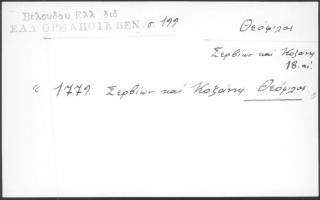 Βελουδου Ελλ διδ
ΕΛΛ ΟΡΘ ΑΠΟΙΚ ΒΕΝ. σ. 199
Θεόφιλος
Σερβίων και Κοζάνης
18. αι.
" 1779. Σερβίων και Κοζάνης Θεόφιλος